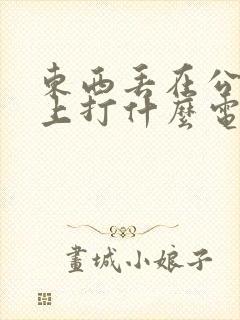 東西丟在公
上打什麼電
畫城小娘子